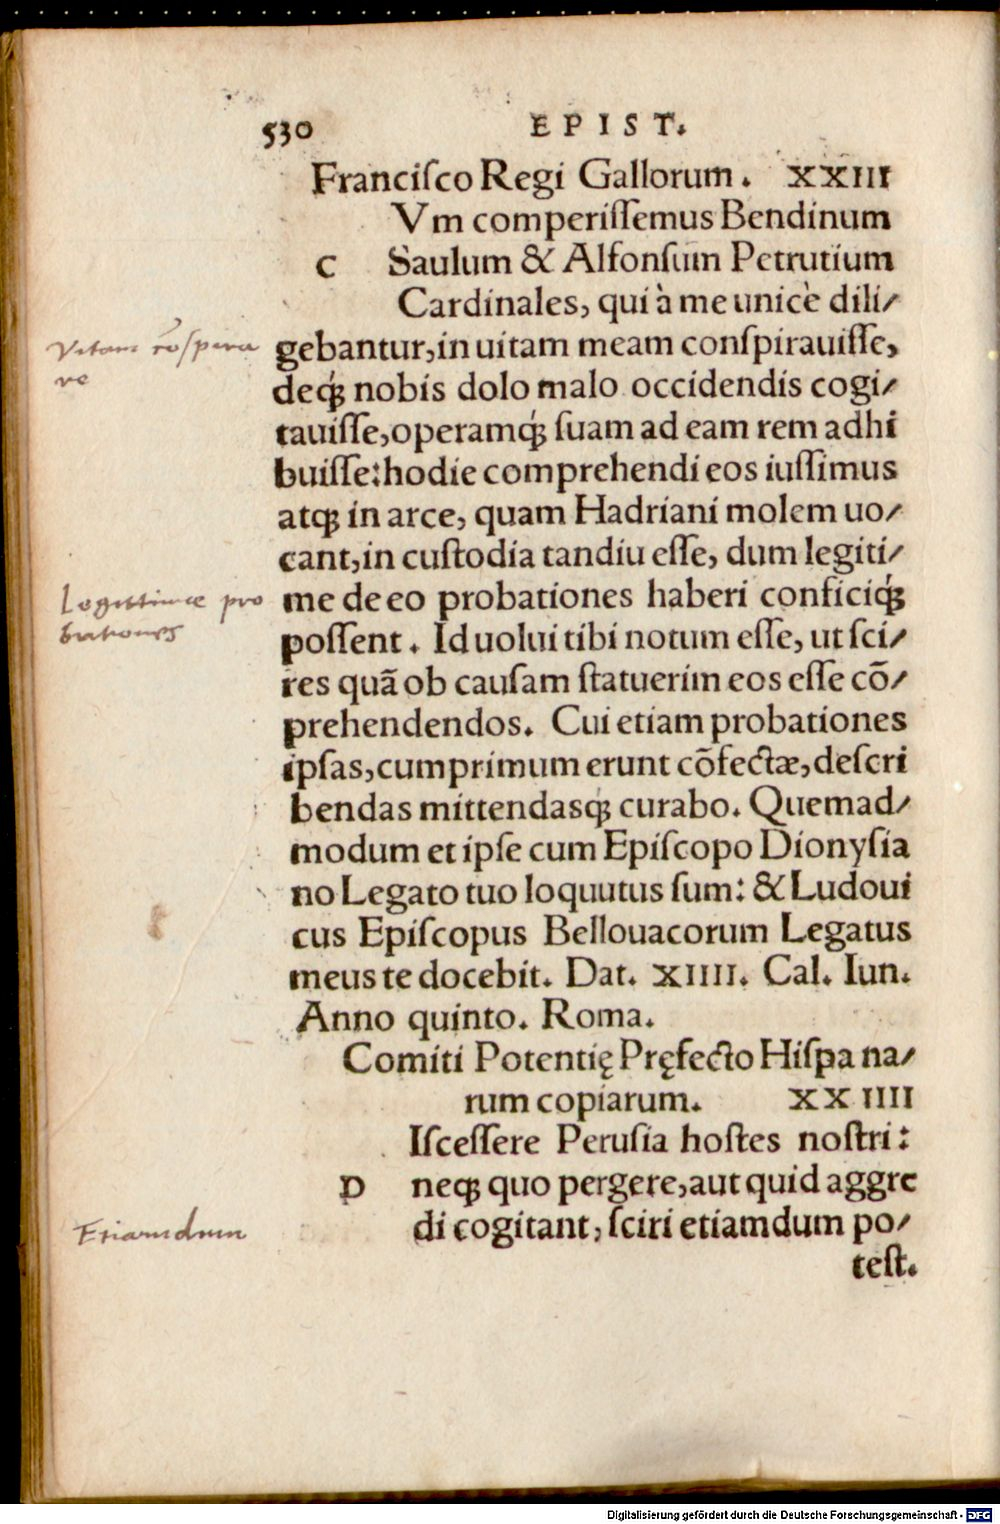 530 EPIST.
Franciſco Regi Gallorum. XXIII
Vm comperiſſemus Bendinum
C Saulum & Alfonſum Petrutium
Cardinales, qui à me unicè dili/
gebantur, in uitam meam conſpirauiſſe,
Vitam cōſpira
re
deq́ꝫ nobis dolo malo occidendis cogi/
tauiſſe, operamq́ꝫ ſuam ad eam rem adhi
buiſſe: hodie comprehendi eos iuſſimus
atqꝫ in arce, quam Hadriani molem uo/
cant, in cuſtodia tandiu eſſe, dum legiti/
me de eo probationes haberi conficiq́ꝫ
Legittimæ pro
bationes
poſſent. Id uolui tibi notum eſſe, ut ſci/
res quã ob cauſam ſtatuerim eos eſſe cõ/
prehendendos. Cui etiam probationes
ipſas, cumprimum erunt cõfectæ, deſcri
bendas mittendasqꝫ curabo. Quemad/
modum et ipſe cum Epiſcopo Dionyſia
no Legato tuo loquutus ſum: & Ludoui
cus Epiſcopus Bellouacorum Legatus
meus te docebit. Dat. XIIII. Cal. Iun.
Anno quinto. Roma.
Comiti Potentię Pręfecto Hiſpa na/
rum copiarum. XX IIII
Iſceſſere Peruſia hoſtes noſtri:
D neqꝫ quo pergere, aut quid aggre
di cogitant, ſciri etiamdum po/
Etiamdum
teſt.
Digitalisierung gefördert durch die Deutsche Forschungsgemeinschaft - DFG